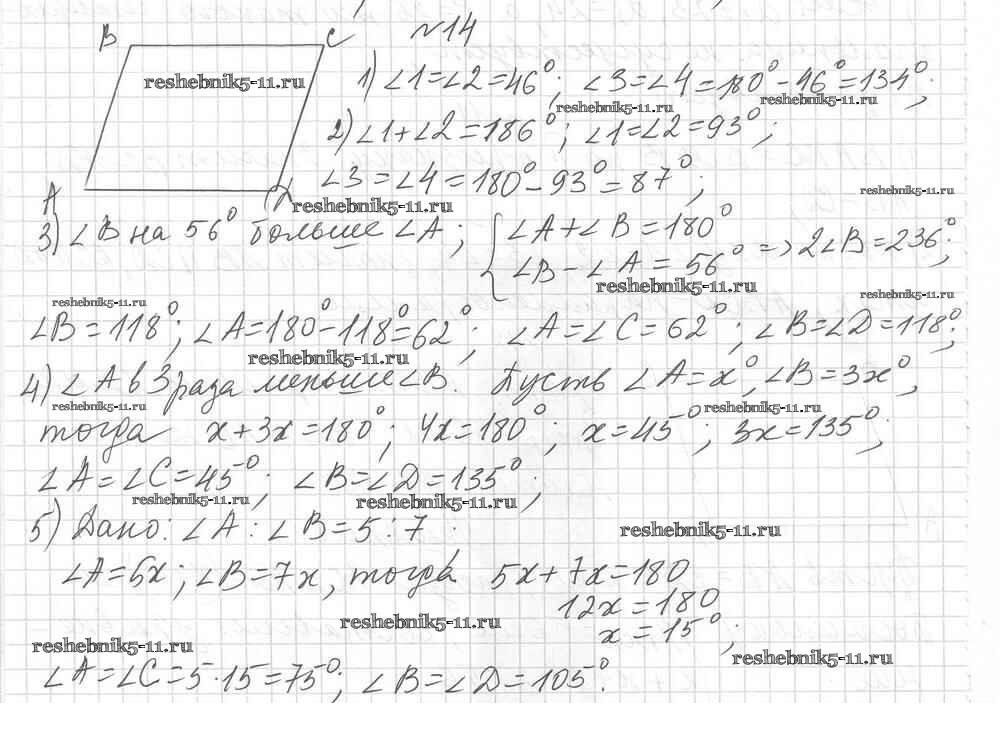 №14
B C
reshebnik5-11.ru
1) ∠1=∠2=46°; ∠3=∠4=180°-46°=134°;
reshebnik5-11.ru reshebnik5-11.ru
2) ∠1+∠2=186°; ∠1=∠2=93°;
∠3=∠4=180°-93°=87°;
reshebnik5-11.ru
A
reshebnik5-11.ru
3) ∠B на 56° больше ∠A; { ∠A+∠B=180°
∠B-∠A=56° => 2∠B=236°;
reshebnik5-11.ru
reshebnik5-11.ru reshebnik5-11.ru
∠B=118°; ∠A=180°-118°=62°; ∠A=∠C=62°; ∠B=∠D=118°;
reshebnik5-11.ru
4) ∠A в 3 раза меньше ∠B. Пусть ∠A=x°, ∠B=3x°,
reshebnik5-11.ru reshebnik5-11.ru
тогда x+3x=180°; 4x=180°; x=45°; 3x=135°;
∠A=∠C=45°; ∠B=∠D=135°;
reshebnik5-11.ru reshebnik5-11.ru
5) Дано: ∠A:∠B=5:7;
reshebnik5-11.ru
∠A=5x; ∠B=7x, тогда 5x+7x=180
12x=180
reshebnik5-11.ru
x=15°;
reshebnik5-11.ru
reshebnik5-11.ru
∠A=∠C=5·15=75°; ∠B=∠D=105°.